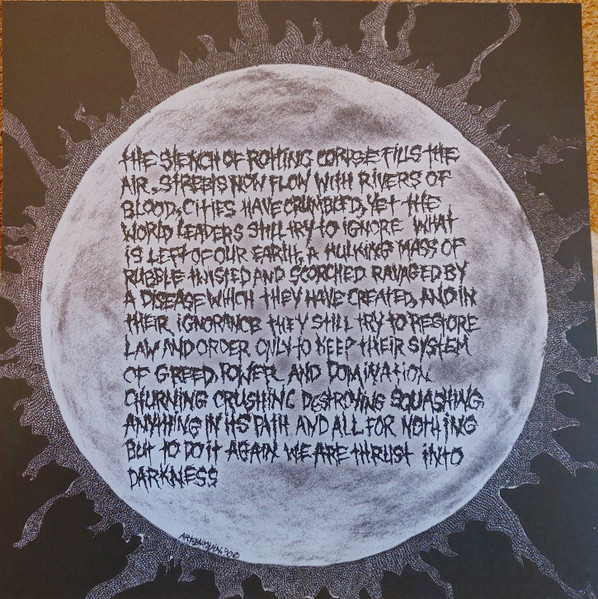 THE STENCH OF ROTTING CORPSE FILLS THE
AIR. STREETS NOW FLOW WITH RIVERS OF
BLOOD, CITIES HAVE CRUMBLED, YET THE
WORLD LEADERS STILL TRY TO IGNORE WHAT
IS LEFT OF OUR EARTH, A HULKING MASS OF
RUBBLE TWISTED AND SCORCHED RAVAGED BY
A DISEASE WHICH THEY HAVE CREATED, AND IN
THEIR IGNORANCE THEY STILL TRY TO RESTORE
LAW AND ORDER ONLY TO KEEP THEIR SYSTEM
OF GREED, POWER AND DOMINATION
CHURNING CRUSHING DESTROYING SQUASHING
ANYTHING IN ITS PATH AND ALL FOR NOTHING
BUT TO DO IT AGAIN WE ARE THRUST INTO
DARKNESS